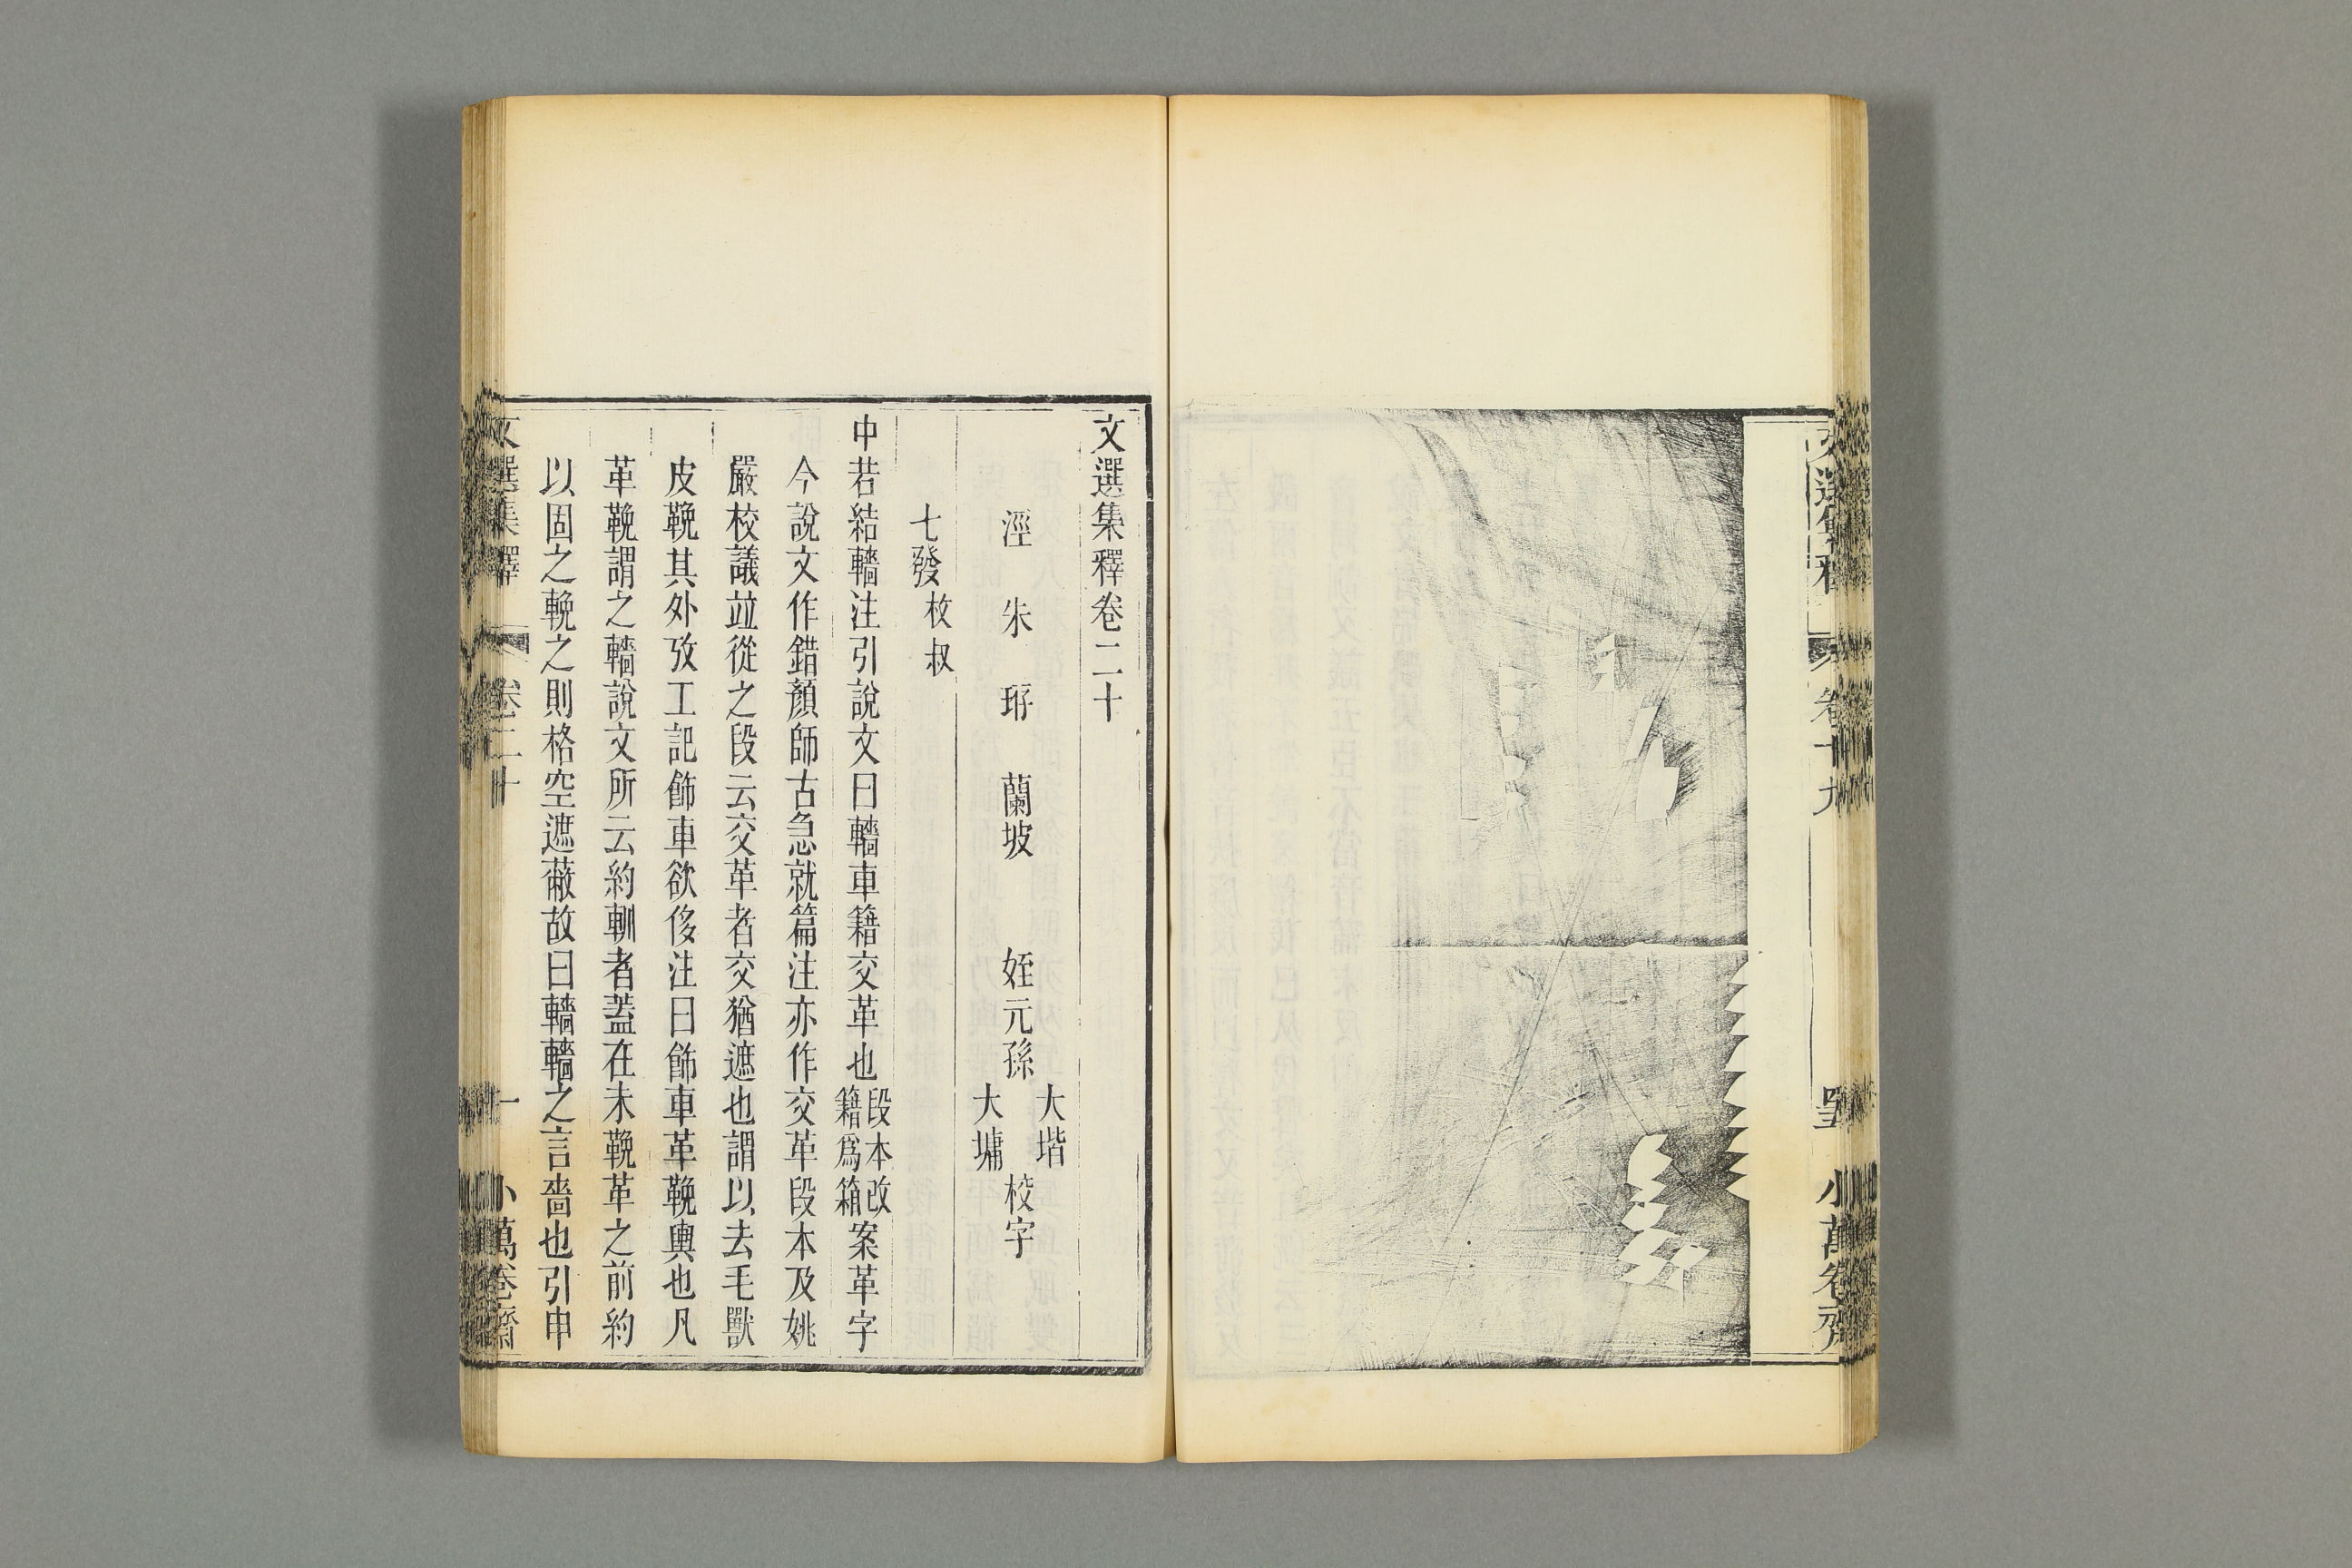 文選集釋
卷十九
小萬卷齋
文選集釋卷二十
涇 朱 珔 蘭坡 姪元孫 大堦 大墉 校字
七發 枚叔
中若結轖注引說文曰轖車籍交革也段本改籍爲箱案革字
今說文作錯顏師古急就篇注亦作交革段本及姚
嚴校議竝從之段云交革者交猶遮也謂以去毛獸
皮鞔其外攷工記飾車欲侈注曰飾車革鞔輿也凡
革鞔謂之轖說文所云約輈者蓋在未鞔革之前約
以固之輓之則格空遮蔽故曰轖轖之言嗇也引申
文選集釋
卷二十
一
小萬卷齋